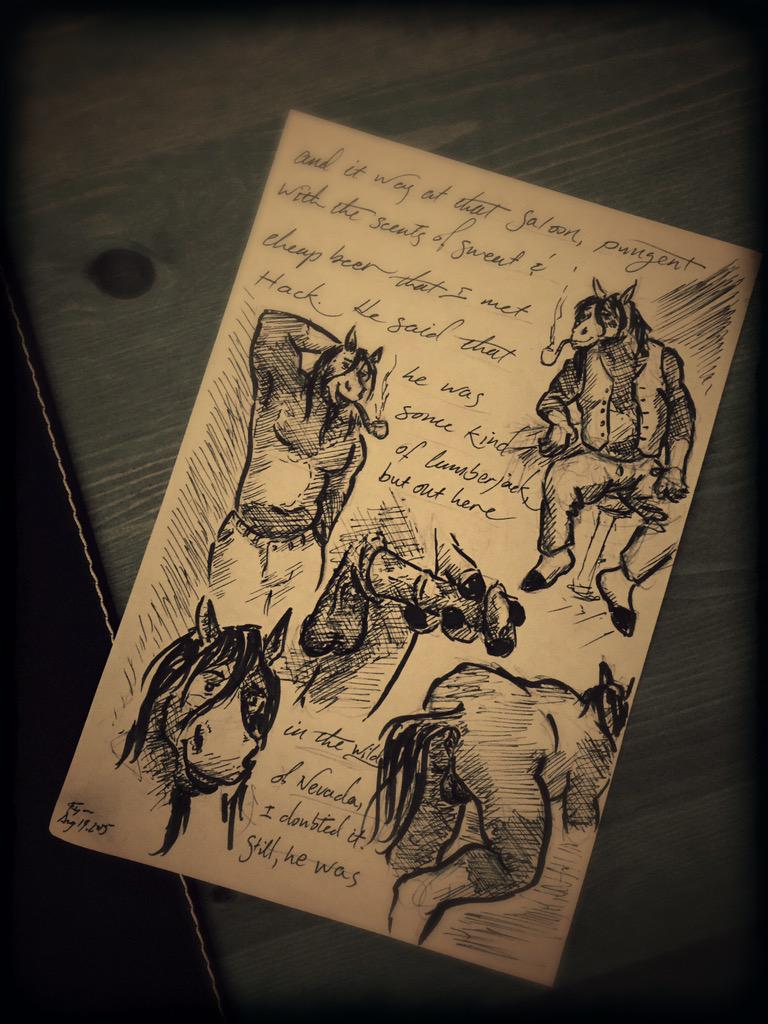 and it was at that saloon, pungent
with the scents of sweat &
cheap beer that I met
Hack. He said that
he was
some kind
of lumberjack
but out here
in the wild
of Nevada,
I doubted it.
Still, he was
Aug 19, 2015